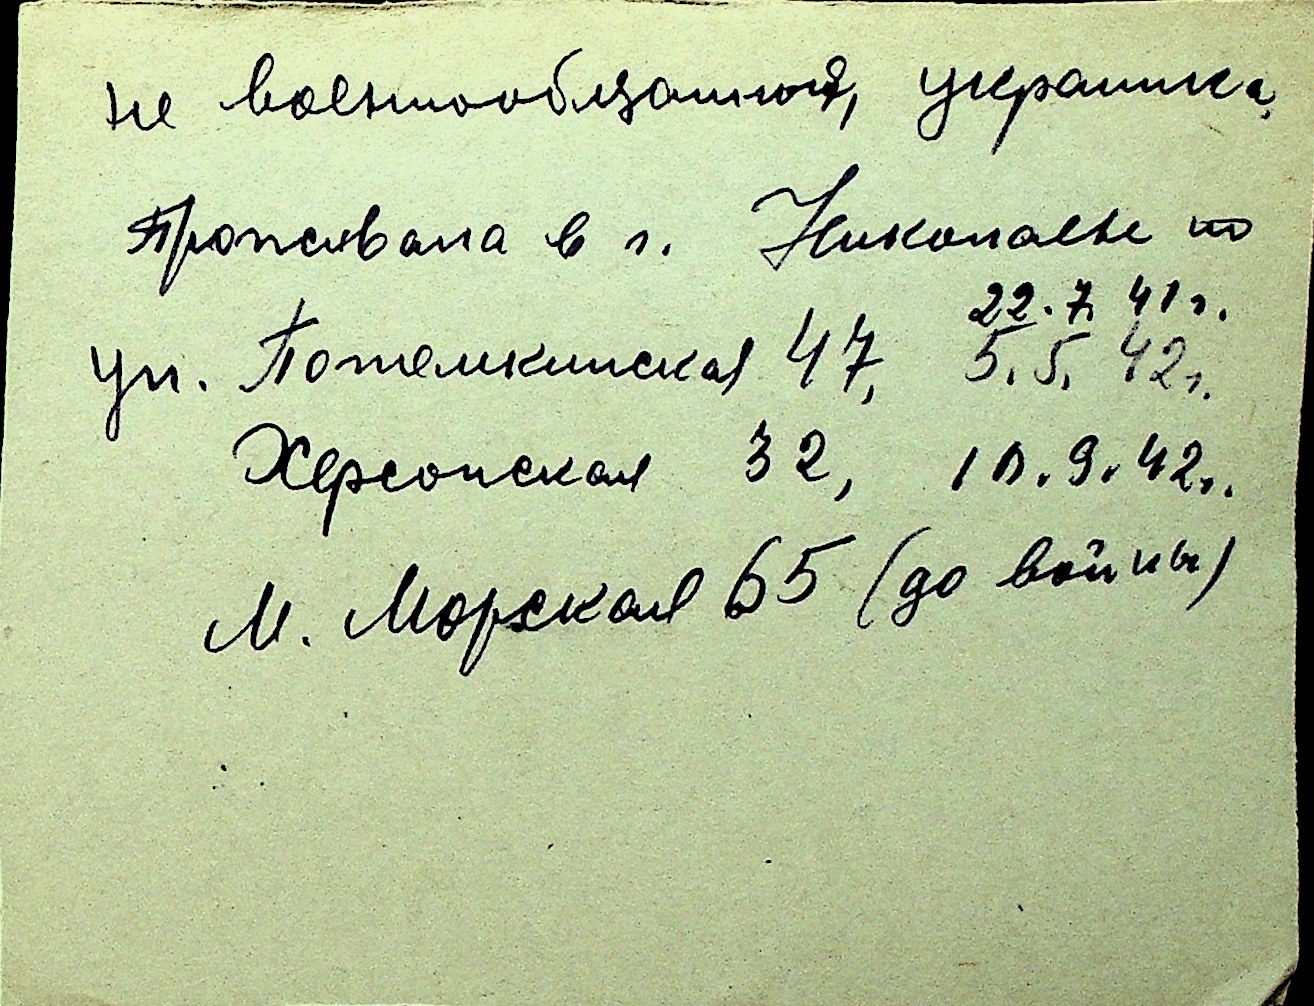 не военнообязанный, украинка,
Проживала в г. Николаеве по
22.7.41г.
ул. Потемкинская 47, 5.5.42г.
Херсонская 32, 10.9.42г.
М. Морская 65 (до войны)